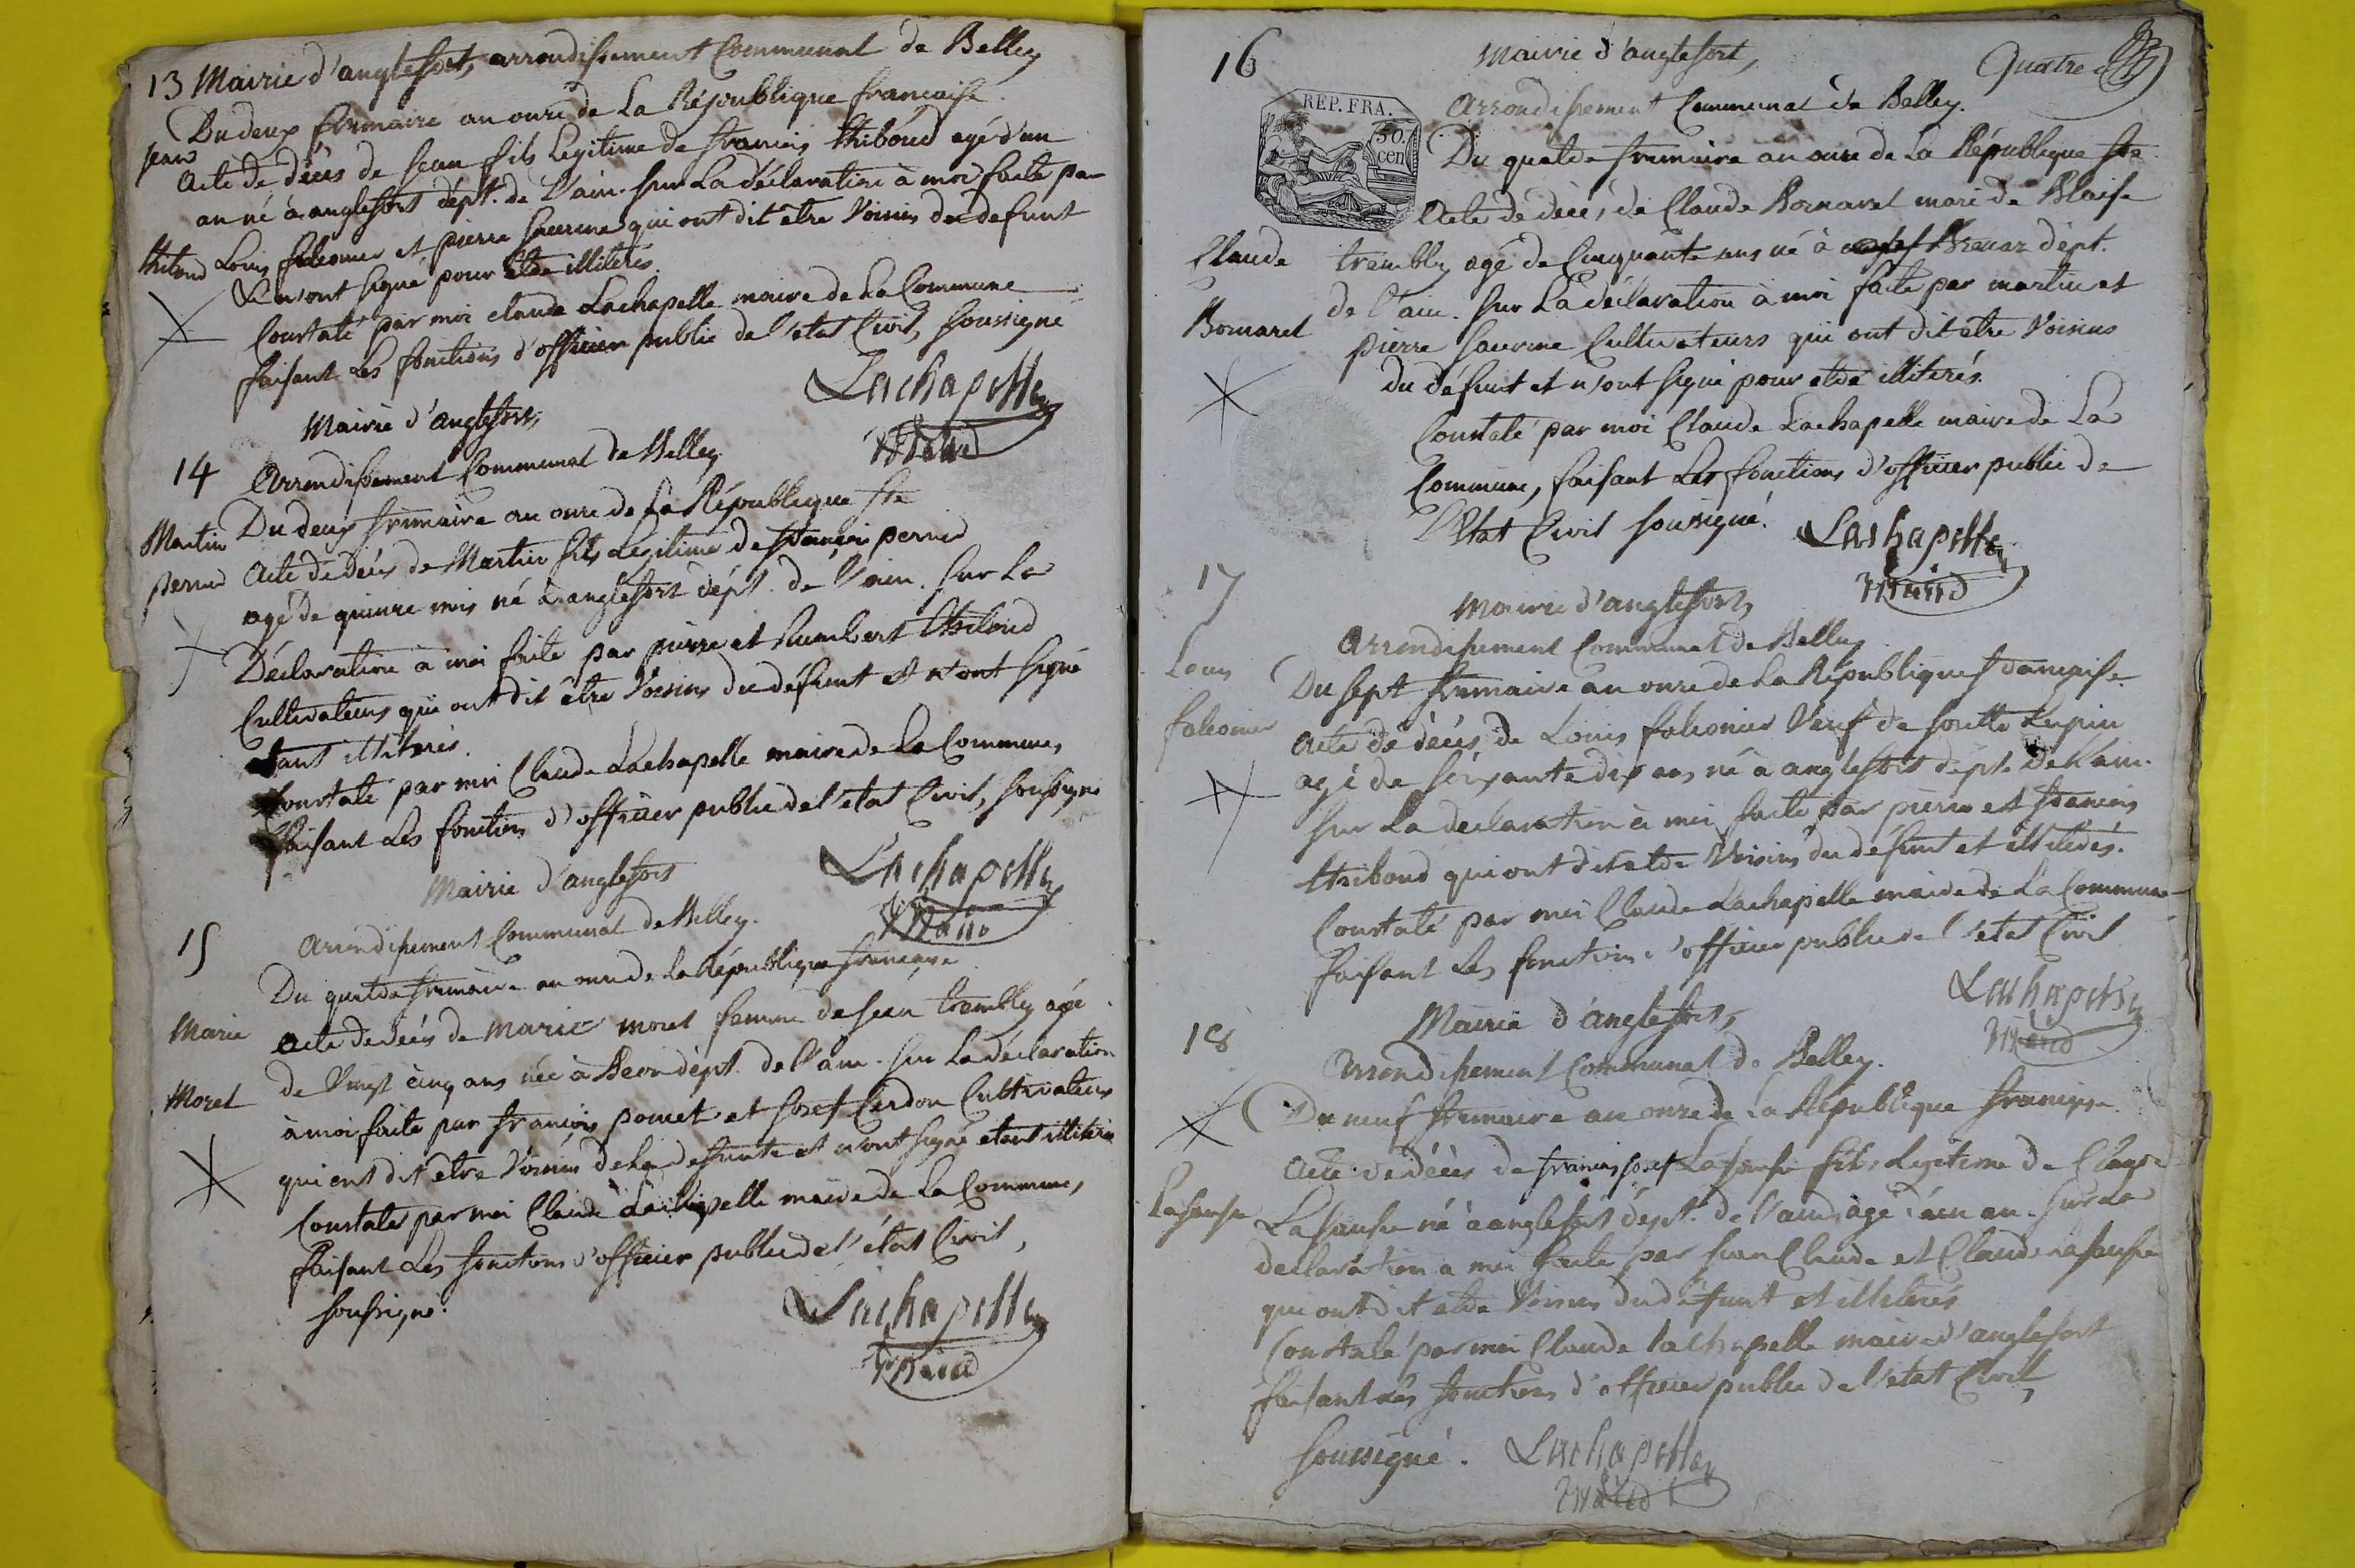 13 Mairie d'anglefort, arrondissement Communal de Belley
Du deux frimaire an onze de la République française.
jean
Acte de décès de jean fils légitime de francois thiboud agé d'un
an né à anglefort dépt. de l'ain. sur la déclaration à moi faite par
thiboud Louis falconier et pierre saurine qui ont dit etre voisins du defunt
& n'ont signé pour etre illiterés.
Constaté par moi claude Lachapelle maire de la Commune
faisant les fonctions d'officier public de l'etat Civil, soussigné
Lachapelle
Maire
Mairie d'anglefort,
14 Arrondissement Communal de Belley
Martin Du deux frimaire an onze de la République fse
pernod Acte de décès de Martin fils légitime de françois pernod
agé de quinze mois né à anglefort dépt. de l'ain. sur la
Déclaration à moi faite par pierre et humbert thiboud
Cultivateurs qui ont dit être voisins du défunt et n'ont signé
étant illiterés.
Constaté par moi Claude Lachapelle maire de la Commune,
faisant les fonctions d'officier public de l'etat Civil, soussigné
Lachapelle
Maire
Mairie d'anglefort
15 Arrondissement Communal de Belley.
Du quatre frimaire an onze de la République française
Marie Acte de décès de marie moret femme de jean trambley agé
de vingt cinq ans née à Béon dépt. de l'ain. sur la déclaration
Moret
à moi faite par françois pomet et josef Cerdon Cultivateurs
qui ont dit etre voisins de la defunte et n'ont signé etant illiterés
Constaté par moi Claude Lachapelle maire de la Commune,
faisant les fonctions d'officier public de l'état Civil,
soussigné.
Lachapelle
Maire
16 Mairie d'anglefort, Quatre
Arrondissement Communal de Belley.
REP. FRA.
50.
cen
Du quatre frimaire an onze de la République fse
Acte de décès de Claude Bornarel mari de Blaise
Claude trambley agé de Cinquante ans né à dépt.
de l'ain. sur la déclaration à moi faite par martin et
Bornarel
pierre saurine Cultivateurs qui ont dit etre voisins
du défunt et n'ont signé pour etre illiterés.
Constaté par moi Claude Lachapelle maire de la
Commune, faisant les fonctions d'officier public de
l'Etat Civil soussigné.
Lachapelle
Maire
17 Mairie d'anglefort,
Arrondissement Communal de Belley
Louis Du sept frimaire an onze de la République française.
falconier Acte de décès de Louis falconier veuf de josette Lupin
agé de soixante dix ans né à anglefort dépt. de l'ain.
sur la déclaration à moi faite par pierre et francois
thiboud qui ont dit etre voisins du défunt et illiterés.
Constaté par moi Claude Lachapelle maire de la Commune
faisant les fonctions d'officier public de l'etat Civil
Lachapelle
Maire
18 Mairie d'anglefort,
Arrondissement Communal de Belley.
Du neuf frimaire an onze de la République française.
Acte de décès de francois josef Lasausse fils légitime de Claude
Lasausse Lasausse né à anglefort dépt. de l'ain, agé d'un an. sur la
déclaration à moi faite par jean Claude et Claude Lasausse
qui ont dit etre voisins du défunt et illiterés
Constaté par moi Claude lachapelle maire d'anglefort
faisant les fonctions d'officier public de l'etat Civil,
soussigné. Lachapelle
Maire